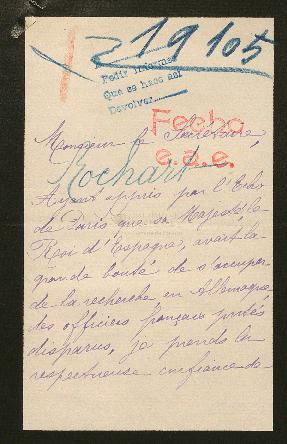 19105
Pedir informes
Que se hace así
Devolver
Fecho
e.a.e.
Monsieur le Secrétaire,
Rochard
Ayant appris par l'Echo
de Paris que sa Majesté le
Roi d'Espagne, avait la
grande bonté de s'occuper
de la recherche en Allemagne
des officiers français portés
disparus, je prends la
respectueuse confiance de